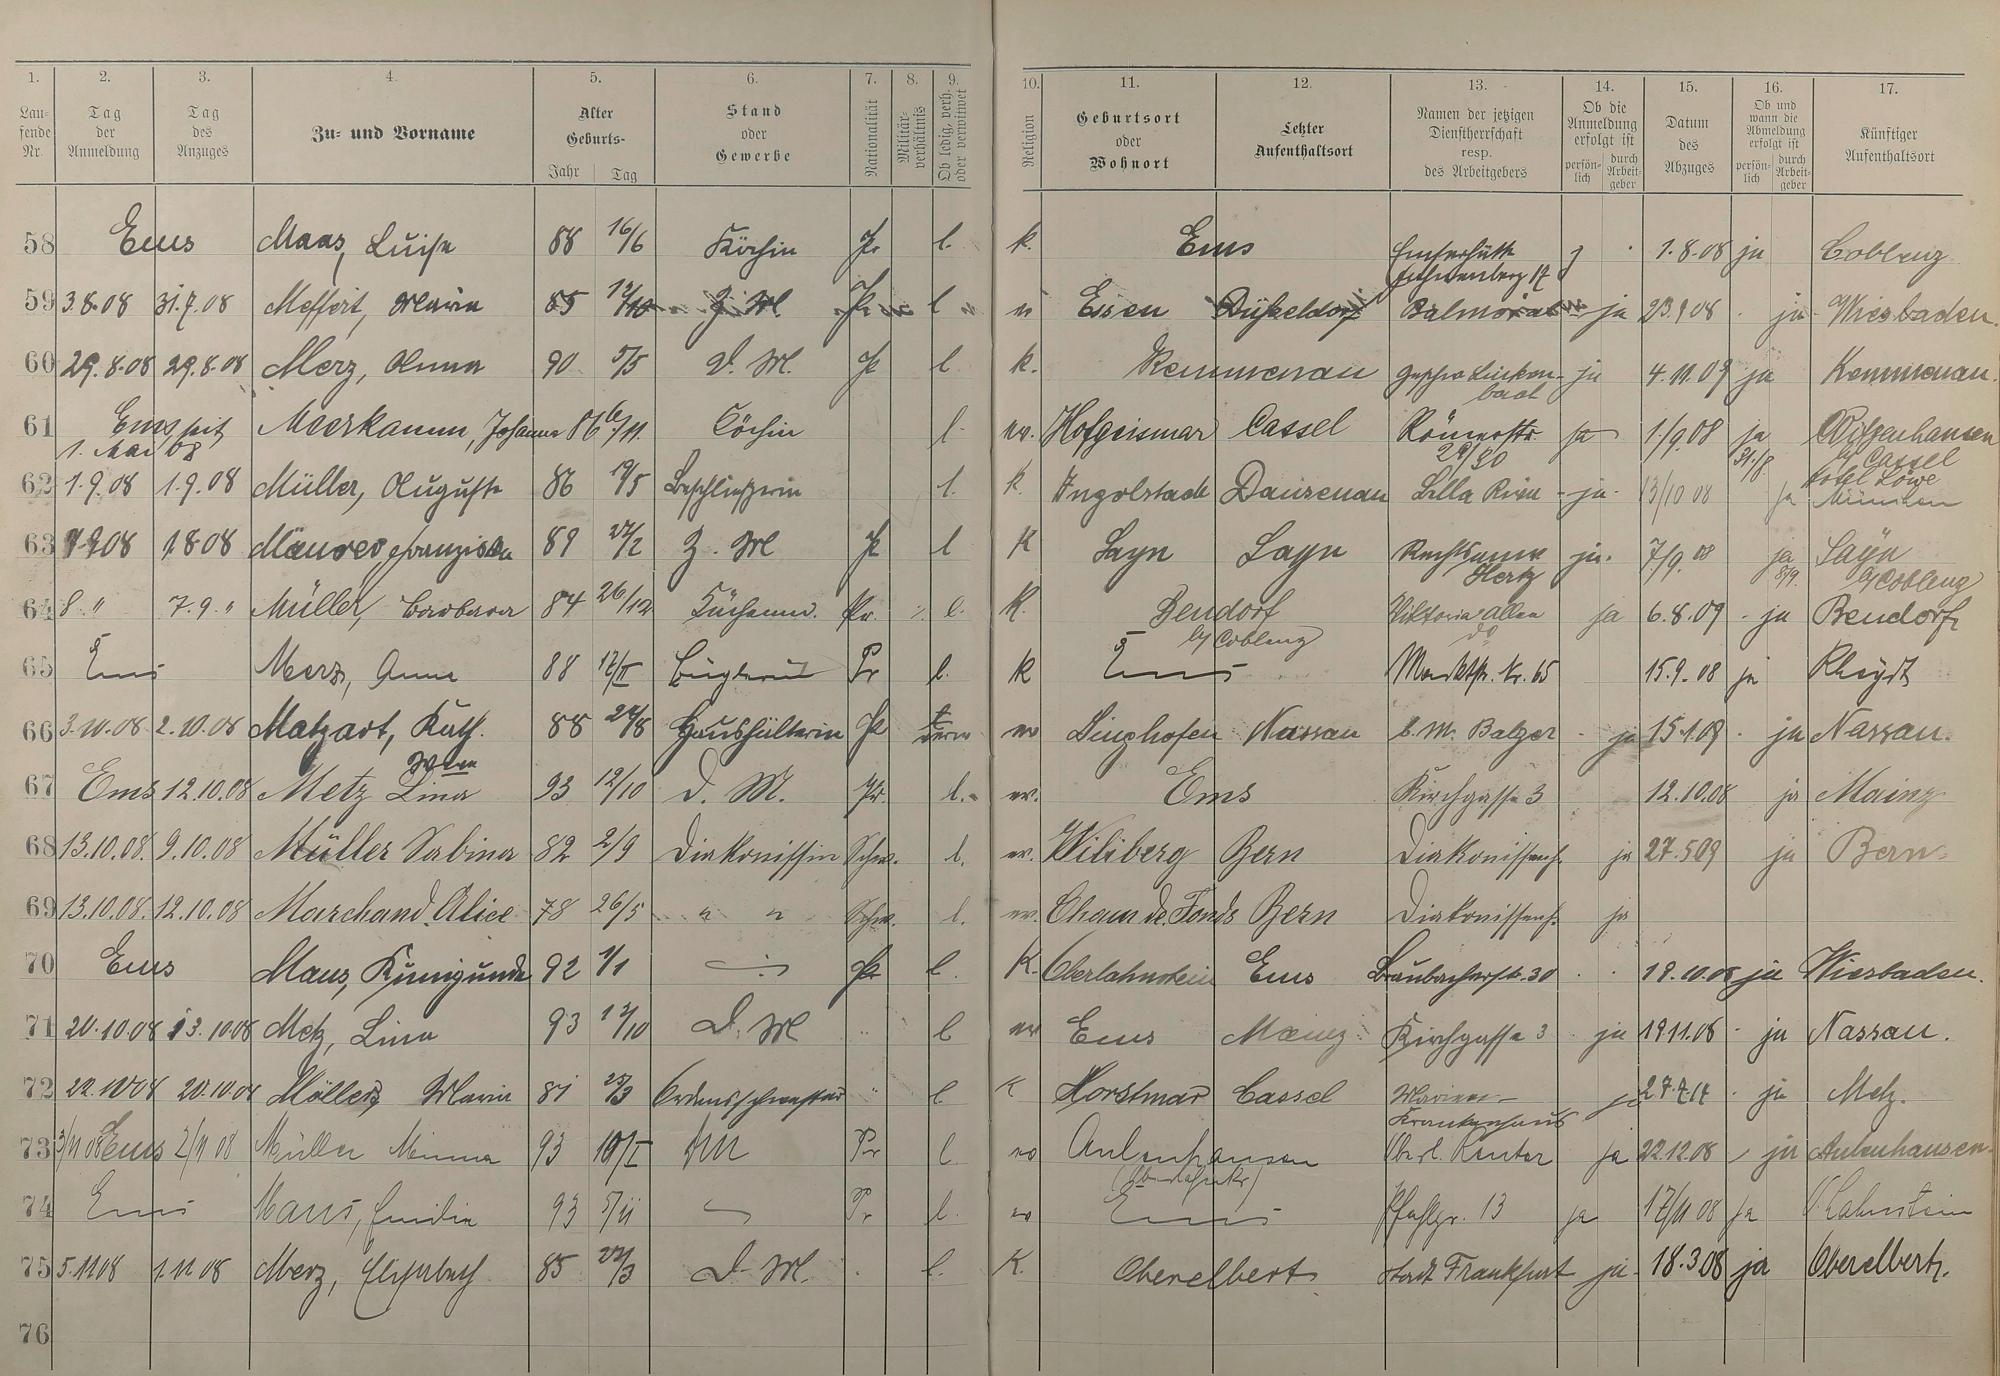 1. 2. 3. 4. 5. 6. 7. 8. 9. 10. 11. 12. 13. 14. 15. 16. 17.
Laufende Nr. Tag der Anmeldung Tag des Anzuges Zu- und Vorname Alter Geburts- Jahr Tag Stand oder Gewerbe Nationalität Militärverhältnis Ob ledig, verh. oder verwitwet Religion Geburtsort oder Wohnort Letzter Aufenthaltsort Namen der jetzigen Dienstherrschaft resp. des Arbeitgebers Ob die Anmeldung erfolgt ist persönlich durch Arbeitgeber Datum des Abzuges Ob und wann die Abmeldung erfolgt ist persönlich durch Arbeitgeber Künftiger Aufenthaltsort
58 Ems Maas, Luise 88 16/6 Köchin Pr l. k. Ems Emserhütte 1.8.08 ja Coblenz
59 3.8.08 31.7.08 Meffert, Maria 85 Z. M. Pr l Essen Düsseldorf Balmoral ja ja Wiesbaden.
60 29.8.08 29.8.08 Merz, Anna 90 5/5 D. M. Pr l k. Kemmenau ja 4.11.09 ja Kemmenau.
61 Ems seit 1. Mai 08 Meerkamm, Johanna 86 6/11. Köchin l ev. Hofgeismar Cassel Römerstr. 29/30 ja 1/9.08 ja 31./8 Witzenhausen b/Cassel
62 1.9.08 1.9.08 Müller, Auguste 86 19/5 Beschließerin l. k. Ingolstadt Dausenau ja 13/10 08 ja Hotel Löwe München
63 1908 1808 Franziska 89 27/2 Z. M Pr l K Sayn Sayn Hertz ja. 7/9.08 ja 8/9. Sayn b/Coblenz
64 8 " 7.9. " Müller, Barbara 84 26/12 Küchenm. Pr. l. K. Bendorf b/Coblenz Viktoria Allee ja 6.8.09 ja Bendorf
65 Ems Merz, Anna 88 12/II Büglerin Pr l. k Ems Marktstr. Nr. 65 15.9.08 ja Rheydt
66 3.10.08 2.10.08 Matzart, Kath. 88 24/8 Haushälterin Pr ev Singhofen Nassau Balzer ja 15.1.09 ja Nassau.
67 Ems 12.10.08 Metz Lina 93 12/10 D. M. Pr. l. ev. Ems Kirchgasse 3 12.10.08 ja Mainz
68 13.10.08. 9.10.08 Müller Sabina 82 2/9 Diakonissin Schw. l. ev. Wiliberg Bern Diakonissenh. ja 27.509 ja Bern
69 13.10.08. 12.10.08 Marchand Alice 78 26/5 " " Schw. l. ev. Chaux de Fonds Bern Diakonissenh. ja
70 Ems Maus, Kunigunde 92 1/1 Pr l. K. Oberlahnstein Ems Braubacherstr. 30 19.10.08 ja Wiesbaden.
71 20.10.08 13.10.08 Metz, Lina 93 12/10 D. M l ev Ems Mainz Kirchgasse 3 ja 1911.08 ja Nassau.
72 22.1008 20.10.08 Möllers Maria 81 25/3 Ordensschwester " l K Horstmar Cassel Marien-Krankenhaus ja 27.7.14 ja Metz.
73 3/11 08 Ems 2/11 08 Müller Minna 93 10/I DM Pr l. ev Aulenhausen (Oberlahnkr) Oberl. Reuter ja 22.12.08 ja Aulenhausen
74 Ems Maus, Emilie 93 5/II Pr l. ev Ems Pfahlgr. 13 ja 17/11 08 ja O. Lahnstein
75 5.1108 1.11 08 Merz, Elisabeth 85 22/3 D. M. l. K. Oberelbert Stadt Frankfurt ja 18.308 ja Oberelbert.
76